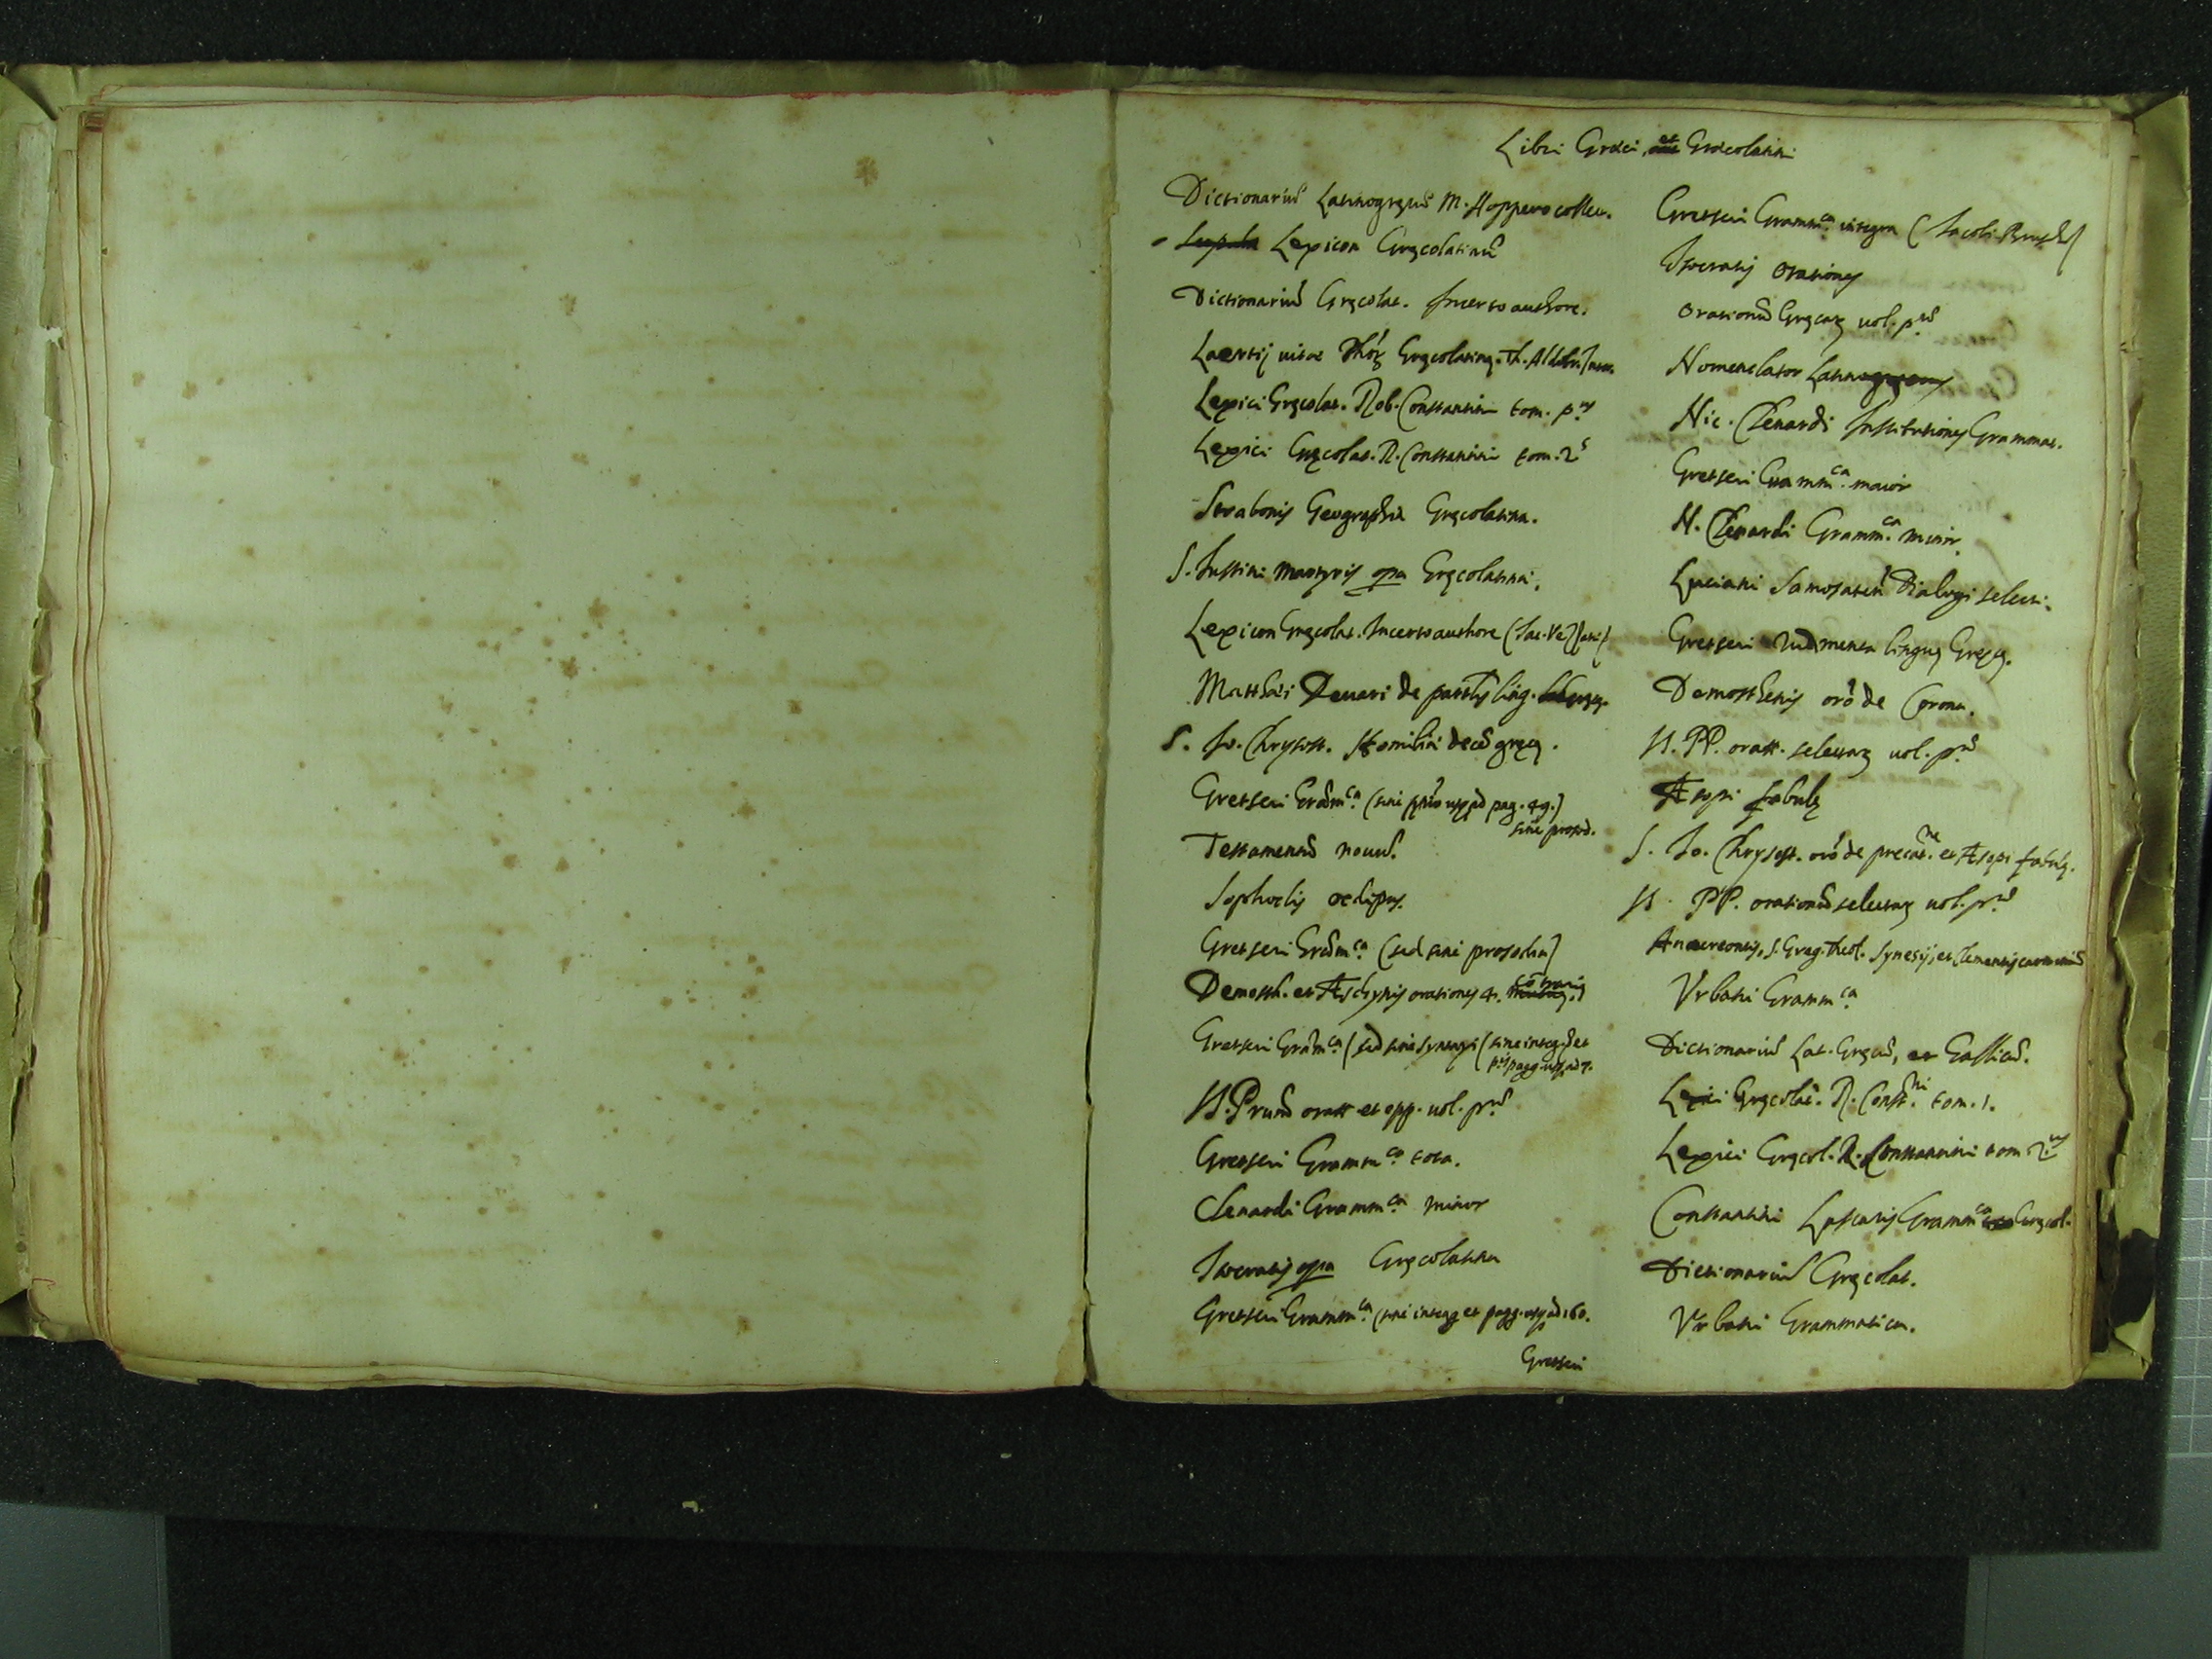 Libri Græci, et Græcolatini
Dictionariũ Latinogręcũ M. Hoppero collect.
Lexicon Gręcolatinũ
Dictionariũ Gręcolat. Incerto authore.
Laertij vitae Gręcolatinę. Th. Aldobr.
Lexici Gręcolat. Rob. Constantini tom. p.us
Lexici Gręcolat. R. Constantini tom. 2.s
Strabonis Geographia Gręcolatina.
S. Iustini Martyris opa Gręcolatina.
Lexicon Gręcolat. Incerto authore
Matthæi Deuari de parttis ling. gręcę.
S. Io. Chrysost. Homiliæ decẽ gręcę.
Gretseri Grãm.ca (sine pag. 49.)
sine prosod.
Testamentũ nouũ.
Sophoclis oedipus.
Gretseri Grãm.ca (sed sine prosodia)
Demosth. et Æschynis orationes 4. cõtrarię
Gretseri Grãm.ca (sed sine syntaxi (sine integ. et
pagg. usq. ad 7.
SS. Patrum oratt. et epp. uol. p.ũ
Gretseri Gramm.ca tota.
Clenardi Gramm.ca minor
Isocratis opa Gręcolatina
Gretseri Gramm.ca (sine et pagg. usq. ad 160.
Gretseri
Gretseri Gramm.ca integra (Iacobi
Isocratis orationes
Orationũ Gręcarũ uol. p.ũ
Nomenclator Latino
Nic. Clenardi Institutiones Grammat.
Gretseri Gramm.ca maior
N. Clenardi Gramm.ca minor.
Luciani Samosatẽn Dialogi selecti.
Gretseri rudimenta linguę Gręcę.
Demosthenis orõ de Corona.
SS. PP. oratt. selectarũ uol. p.ũ
Æsopi fabulę
S. Io. Chrysost. orõ de precat.ne et Æsopi fabulę.
SS. PP. orationũ selectarũ uol. p.ũ
Anacreontis, S. Greg. theol. Synesij, et Clementis carminũ
Vrbani Gramm.ca
Dictionariũ Lat. Gręcũ, et Gallicũ.
Lexici Gręcolat. R. Const.ni tom. 1.
Lexici Gręcol. R. Constantini tom 2.us
Constantini Lascaris Gramm.ca Gręcol.
Dictionariũ Gręcolat.
Vrbani Grammatica.